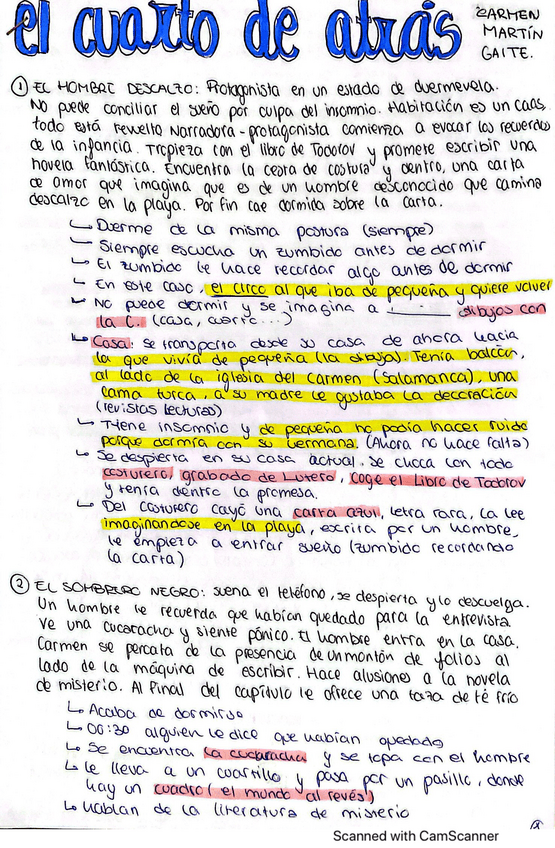 el cuarto de atrás
CARMEN
MARTÍN
GAITE.
① EL HOMBRE DESCALZO: Protagonista en un estado de duermevela.
No puede conciliar el sueño por culpa del insomnio. Habitación es un caos,
todo está revuelto Narradora-protagonista comienza a evocar los recuerdos
de la infancia. Tropieza con el libro de Todorov y promete escribir una
novela fantástica. Encuentra la cesta de costura y dentro, una carta
de amor que imagina que es de un hombre desconocido que camina
descalzo en la playa. Por fin cae dormida sobre la carta.
↳ Duerme de la misma postura (siempre)
↳ Siempre escucha un zumbido antes de dormir
↳ El zumbido le hace recordar algo antes de dormir
↳ En este caso, el circo al que iba de pequeña y quiere volver
↳ No puede dormir y se imagina a ______ dibujos con
la C. (casa, cuarto...)
↳ Casa: se transporta desde su casa de ahora hacia
la que vivía de pequeña (la dibuja). Tenía balcón,
al lado de la iglesia del Carmen (Salamanca), una
cama turca, a su madre le gustaba la decoración
(revistas lecturas)
↳ Tiene insomnio y de pequeña no podía hacer ruido
porque dormía con su hermana. (Ahora no hace falta)
↳ Se despierta en su casa actual. Se choca con todo
costurero, grabado de Lutero, coge el libro de Todorov
y tenía dentro la promesa.
↳ Del costurero cayó una carta azul, letra rara, la lee
imaginandose en la playa, escrita por un hombre,
le empieza a entrar sueño (zumbido recordando
la carta)
② EL SOMBRERO NEGRO: suena el teléfono, se despierta y lo descuelga.
Un hombre le recuerda que habían quedado para la entrevista
Ve una cucaracha y siente pánico. El hombre entra en la casa.
Carmen se percata de la presencia de un montón de folios al
lado de la máquina de escribir. Hace alusiones a la novela
de misterio. Al final del capítulo le ofrece una taza de té frío
↳ Acaba de dormirse
↳ 00:30 alguien le dice que habían quedado
↳ Se encuentra la cucaracha y se topa con el hombre
↳ Le lleva a un cuartillo y pasa por un pasillo, donde
hay un cuadro (el mundo al revés)
↳ Hablan de la literatura de misterio
Scanned with CamScanner